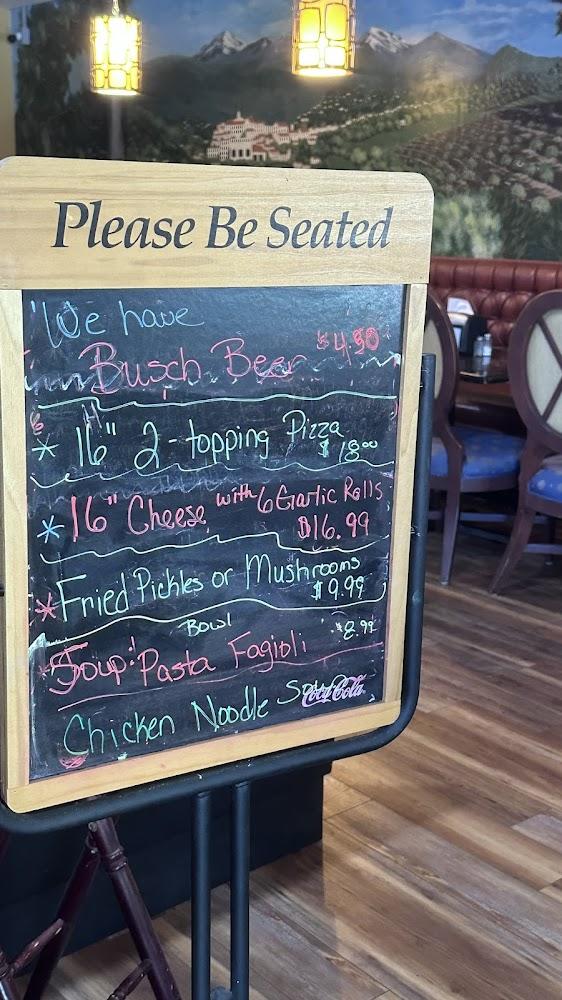 Please Be Seated
We have
Busch Beer $4.50
* 16" 2-topping Pizza
$18.00
* 16" Cheese with 6 Garlic Rolls
$16.99
* Fried Pickles or Mushrooms
$9.99
Bowl
* Soup: Pasta Fagioli $8.99
Chicken Noodle
Coca-Cola